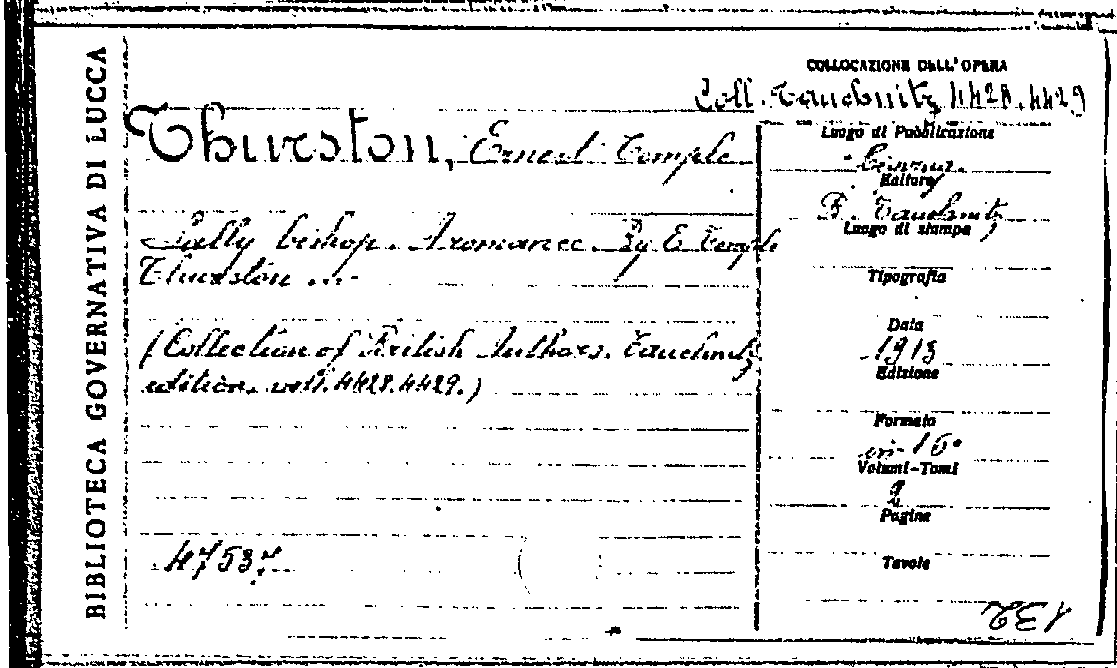 BIBLIOTECA GOVERNATIVA DI LUCCA
COLLOCAZIONE DELL'OPERA
Coll. Tauchnitz 4428.4429
Thurston, Ernest Temple
Sally bishop. A romance. By E. Temple
Thurston ...
(Collection of British Authors. Tauchnitz
edition. voll. 4428.4429.)
4753
Luogo di Pubblicazione
Editore
B. Tauchnitz
Luogo di stampa
Tipografia
Data
1913
Edizione
Formato
in-16°
Volumi-Tomi
2
Pagine
Tavole
132